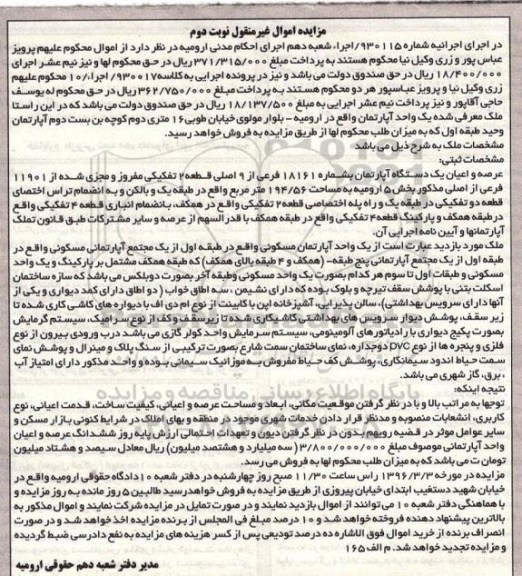 مزایده اموال غیرمنقول نوبت دوم
در اجرای اجرائیه شماره ۹۳۰۱۱۵/اجرا، شعبه دهم اجرای احکام مدنی ارومیه در نظر دارد از اموال محکوم علیهم پرویز
عباس پور و زری وکیل نیا محکوم هستند به پرداخت مبلغ ۳۷۱/۳۱۵/۰۰۰ ریال در حق محکوم لها و نیز نیم عشر اجرای
۱۸/۴۰۰/۰۰۰ ریال در حق صندوق دولت می باشد و نیز در پرونده اجرایی به کلاسه ۹۳۰۰۱۷ اجرا/۱۰ محکوم علیهم
زری وکیل نیا و پرویز عباسپور هر دو محکوم هستند به پرداخت مبلغ ۳۶۲/۷۵۰/۰۰۰ ریال در حق محکوم له یوسف
حاجی آقاپور و نیز پرداخت نیم عشر اجرایی به مبلغ ۱۸/۱۳۷/۵۰۰ ریال در حق صندوق دولت می باشد که در این راستا
ملک معرفی شده یک واحد آپارتمان واقع در ارومیه - بلوار مولوی خیابان طوبی ۱۶ متری دوم کوچه بن بست دوم آپارتمان
وحید طبقه اول که به میزان طلب محکوم لها از طریق مزایده به فروش خواهد رسید.
مشخصات ملک به شرح ذیل می باشد:
مشخصات ثبتی:
عرصه و اعیان یک دستگاه آپارتمان بشماره ۱۸۱۶۱ فرعی از ۹ اصلی قطعه ۲ تفکیکی مفروز و مجزی شده از ۱۱۹۰۱
فرعی از اصلی مذکور بخش ۵ ارومیه به مساحت ۱۹۴/۵۶ متر مربع واقع در طبقه یک و بالکن و به انضمام تراس اختصاصی
قطعه دو تفکیکی در طبقه یک و راه پله اختصاصی قطعه ۲ تفکیکی واقع در همکف، بانضمام انباری قطعه ۴ تفکیکی واقع
در طبقه همکف و پارکینگ قطعه ۴ تفکیکی واقع در طبقه همکف با قدر السهم از عرصه و سایر مشترکات طبق قانون تملک
آپارتمانها و آیین نامه اجرایی آن.
ملک مورد بازدید عبارت است از یک واحد آپارتمان مسکونی واقع در طبقه اول از یک مجتمع آپارتمانی مسکونی واقع در
طبقه اول از یک مجتمع آپارتمانی پنج طبقه- (همکف و ۴ طبقه بالای همکف) که طبقه همکف مشتمل بر پارکینگ و یک واحد
مسکونی و طبقات اول تا سوم هر کدام بصورت یک واحد مسکونی وطبقه آخر بصورت دوبلکس می باشد که سازه ساختمان
اسکلت بتنی با پوشش سقف تیرچه و بلوک بوده که دارای نشیمن، سه اطاق خواب ( دو اطاق دارای کمد دیواری و یکی از
آنها دارای سرویس بهداشتی)، سالن پذیرایی، آشپزخانه اپن با کابینت از نوع ام دی اف با دیواره های کاشی کاری شده تا
زیر سقف، پوشش دیوار سرویس های بهداشتی کاشیکاری شده تا زیر سقف و کف از نوع سرامیک، سیستم گرمایش
بصورت پکیج دیواری با رادیاتورهای آلومینیومی، سیستم سرمایش واحد کولر گازی می باشد درب ورودی بیرون از نوع
فلزی و پنجره ها از نوع PVC دوجداره، نمای ساختمان سمت شارع بصورت ترکیبی از سنگ پلاک و مینرال و پوشش نمای
سمت حیاط اندود سیمانکاری، پوشش کف حیاط مفروش به موزائیک سیمانی بوده و واحد مذکور دارای امتیاز آب
، برق، گاز شهری می باشد.
نتیجه اینکه:
توجها به مراتب بالا و با در نظر گرفتن موقعیت مکانی، ابعاد و مساحت عرصه و اعیانی، کیفیت ساخت، قدمت اعیانی، نوع
کاربری، انشعابات منصوبه و مدنظر قرار دادن خدمات شهری موجود در منطقه و بهای املاک در شرایط کنونی بازار مسکن و
سایر عوامل موثر در قضیه رویهم بدون در نظر گرفتن دیون و تعهدات احتمالی ارزش پایه روز ششدانگ عرصه و اعیان
واحد آپارتمانی موصوف مبلغ ۳/۸۰۰/۰۰۰/۰۰۰ (سه میلیارد و هشتصد میلیون) ریال معادل سیصد و هشتاد میلیون
تومان ت می باشد که به میزان طلب محکوم لها به فروش می رسد.
مزایده در مورخه ۱۳۹۶/۳/۳ راس ساعت ۱۱/۳۰ صبح روز چهارشنبه در دفتر شعبه ۱۰ دادگاه حقوقی ارومیه واقع در
خیابان شهید دستغیب ابتدای خیابان پیروزی از طریق مزایده به فروش خواهدرسید طالبین ۵ روز مانده به روز مزایده و
با هماهنگی دفتر شعبه ۱۰ می توانند از اموال بازدید نمایند و در صورت تمایل در مزایده شرکت نمایند و اموال مذکور به
بالاترین پیشنهاد دهنده فروخته خواهد شد و ۱۰ درصد مبلغ فی المجلس از برنده مزایده اخذ خواهد شد و در صورت
انصراف برنده از خرید اموال فوق الاشاره ده درصد تودیعی پس از کسر هزینه های مزایده به نفع دادرسی ضبط گردیده
و مزایده تجدید خواهد شد. م الف ۱۶۵
مدیر دفتر شعبه دهم حقوقی ارومیه